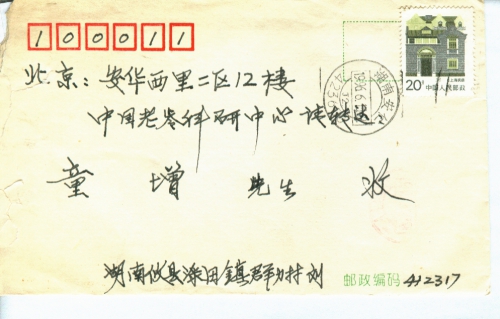 100011
北京：安华西里二区12楼
中国老龄科研中心 请转达
童增 先生 收
湖南攸县漆田鎮群力村刘
邮政编码 412317
20分
上海民居
中国人民邮政
湖南